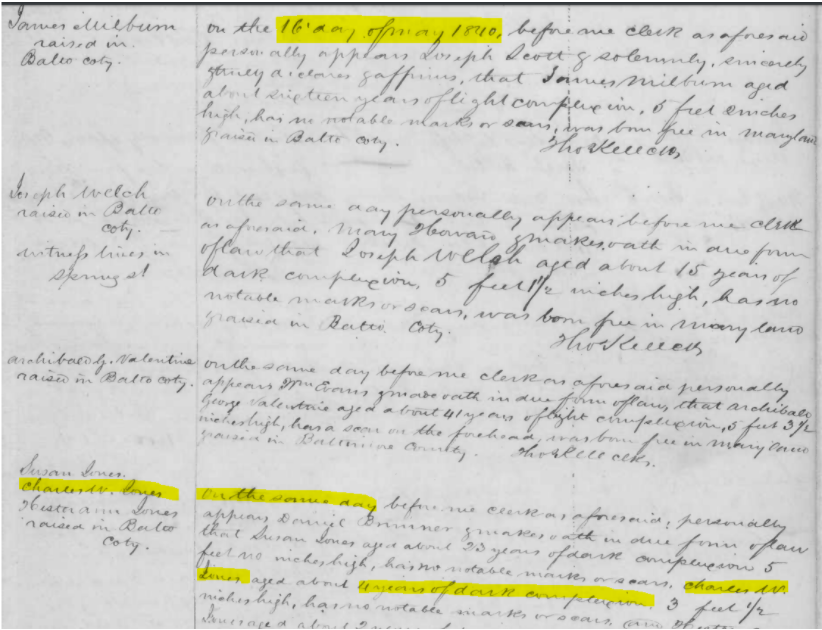 James Milburn
raised in
Balto coty.
on the 16' day of may 1840, before me clerk as aforesaid
personally appears Joseph Scott & solemnly, sincerely
& truly declares & affirms, that James Milburn aged
about sixteen years of light complexion, 5 feet inches
high, has no notable marks or scars, was born free in maryland
& raised in Balto coty.
Tho Kell clk
Joseph Welch
raised in Balto
coty.
witness lives in
spring st
on the same day personally appears before me clerk
as aforesaid, Mary Howard & makes oath in due form
of law that Joseph Welch aged about 15 years of
dark complexion, 5 feet 1½ inches high, has no
notable marks or scars, was born free in maryland
& raised in Balto Coty.
Tho Kell clk
archibald G. Valentine
raised in Balto coty.
on the same day before me clerk as aforesaid personally
appears Wm Evans & made oath in due form of law, that archibald
George Valentine aged about 41 years of light complexion, 5 feet 3½
inches high, has a scar on the forehead, was born free in maryland
& raised in Baltimore County.
Tho Kell clk.
Susan Jones.
Charles W. Jones
Hester ann Jones
raised in Balto
coty.
on the same day before me clerk as aforesaid, personally
appears Daniel & makes oath in due form of law
that Susan Jones aged about 23 years of dark complexion 5
feet no inches high, has no notable marks or scars, Charles W.
Jones aged about 4 years of dark complexion 3 feet ½
inches high, has no notable marks or scars, and Hester
Jones aged about